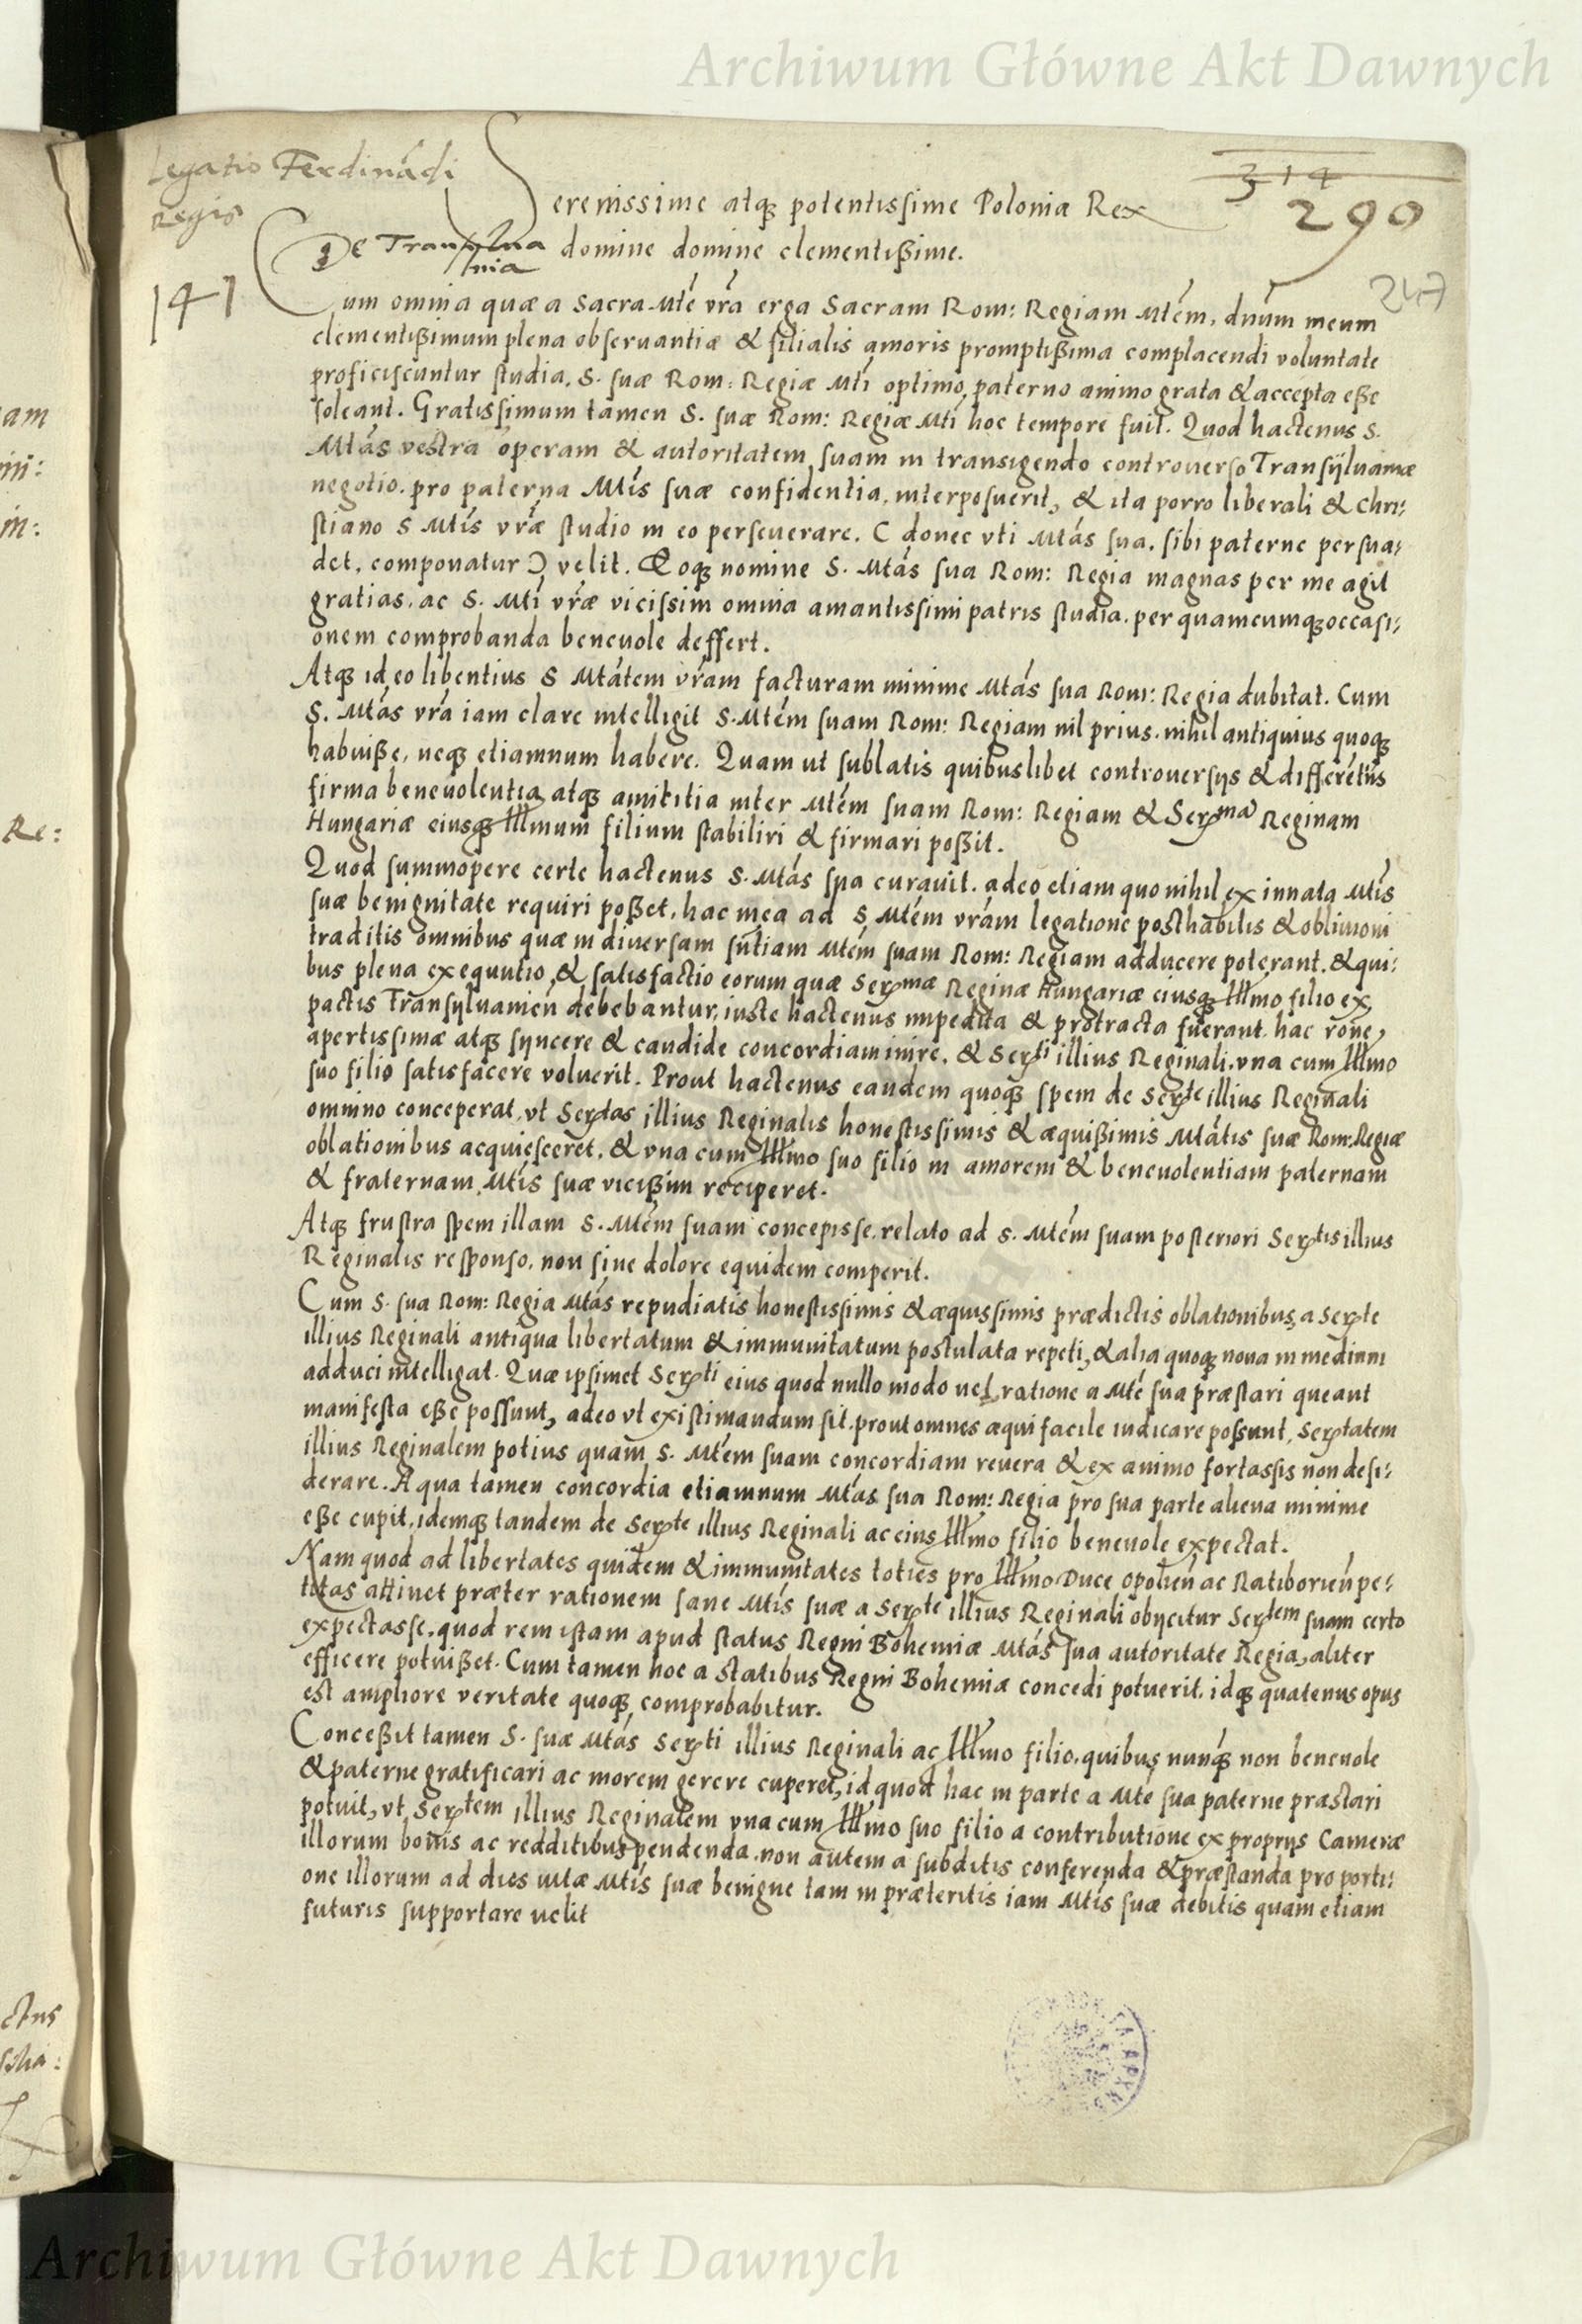 Archiwum Główne Akt Dawnych
Legatio Ferdinãdi
Regis
De Transylua
nia
141
314
290
247
Serenissime atq; potentissime Polonia Rex
domine domine clementißime.
Cum omnia quæ a Sacra Mte vrã erga Sacram Rom: Regiam Mtem, dnũm meum
clementißimum plena obseruantiæ & filialis amoris promptißima complacendi voluntate
proficiscuntur studia, S. suæ Rom: Regiæ Mti optimo, paterno animo grata & accepta eße
soleant. Gratissimum tamen S. suæ Rom: Regiæ Mti hoc tempore fuit. Quod hactenus S.
Mtas vestra operam & autoritatem suam in transigendo controuerso Transÿluaniæ
negotio, pro paterna Mtis suæ confidentia, interposuerit, & ita porro liberali & Chri:
stiano S Mtis vræ studio in eo perseuerare. C donec vti Mtas sua, sibi paterne persua:
det, componatur Ɔ velit. Eoq; nomine S. Mtas sua Rom: Regia magnas per me agit
gratias, ac S. Mti vræ vicissim omnia amantissimi patris studia, per quamcumq; occasi:
onem comprobanda beneuole deffert.
Atq; id eo libentius S Mtatem vrãm facturam minime Mtas sua Rom: Regia dubitat. Cum
S. Mtas vrã iam clare intelligit S. Mtem suam Rom: Regiam nil prius, nihil antiquius quoq;
habuiße, neq; etiamnum habere. Quam ut sublatis quibuslibet controuersijs & differẽtijs
firma beneuolentia, atq; amititia inter Mtem suam Rom: Regiam & Sermã Reginam
Hungariæ eiusq; Illmum filium stabiliri & firmari poßit.
Quod summopere certe hactenus S. Mtas sua curauit, adeo etiam quo nihil ex innata Mtis
suæ benignitate requiri poßet, hac mea ad S. Mtem vrãm legatione posthabitis & obliuioni
traditis omnibus quæ in diuersam sntiam Mtem suam Rom: Regiam adducere poterant, & qui:
bus plena exequutio, & satisfactio eorum quæ Sermæ Reginæ Hungariæ eiusq; Illmo filio ex
pactis Transyluanieñ debebantur, iuste hactenus impedita & protracta fuerant, hac rone,
apertissimæ atq; syncere & candide concordiam inire, & Serti illius Reginali, vna cum Illmo
suo filio satisfacere voluerit. Prout hactenus eandem quoq; spem de Serte illius Reginali
omnino conceperat, vt Sertas illius Reginalis honestissimis & æquißimis Mtatis suæ Rom: Regiæ
oblationibus acquiesceret, & vna cum Illmo suo filio in amorem & beneuolentiam paternam
& fraternam Mtis suæ vicißim reciperet.
Atq; frustra spem illam S. Mtem suam concepisse, relato ad S. Mtem suam posteriori Sertis illius
Reginalis responso, non sine dolore equidem comperit.
Cum S. sua Rom: Regia Mtas repudiatis honestissimis & æquissimis prædictis oblationibus, a Serte
illius Reginali antiqua libertatum & immunitatum postulata repeti, & alia quoq; noua in medium
adduci intelligat. Quæ ipsimet Serti eius quod nullo modo uel ratione a Mte sua præstari queant
manifesta eße possunt, adeo vt existimandum sit, prout omnes æqui facile iudicare possunt, Sertatem
illius Reginalem potius quam S. Mtem suam concordiam reuera & ex animo fortassis non desi:
derare. A qua tamen concordia etiamnum Mtas sua Rom: Regia pro sua parte aliena minime
eße cupit, idemq; tandem de Serte illius Reginali ac eius Illmo filio beneuole expectat.
Nam quod ad libertates quidem & immunitates toties pro Illmo Duce Opolieñ ac Ratiborieñ pe:
titas attinet præter rationem sane Mtis suæ a Serte illius Reginali obijcitur Sertem suam certo
expectasse, quod rem istam apud status Regni Bohemiæ Mtas sua autoritate Regia, aliter
efficere potuißet. Cum tamen hoc a Statibus Regni Bohemiæ concedi potuerit, idq; quatenus opus
est ampliore veritate quoq; comprobabitur.
Conceßit tamen S. suæ Mtas Serti illius Reginali ac Illmo filio, quibus nunq̃ non beneuole
& paterne gratificari ac morem gerere cuperet, id quod hac in parte a Mte sua paterne præstari
potuit, vt Sertem illius Reginalem vna cum Illmo suo filio a contributione ex proprijs Cameræ
illorum bonis ac redditibus pendenda, non autem a subditis conferenda & præstanda pro porti:
one illorum ad dies uitæ Mtis suæ benigne tam in præteritis iam Mtis suæ debitis quam etiam
futuris supportare uelit
am
in:
Re:
ctus
Archiwum Główne Akt Dawnych